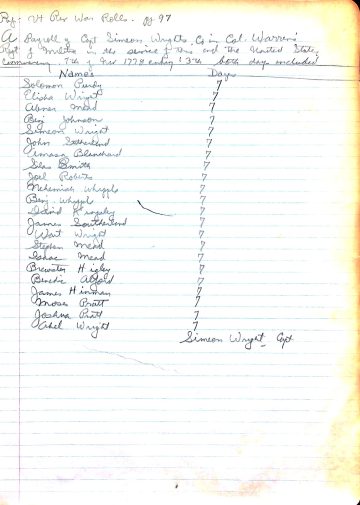 Ref: Vt Rev War Rolls. pg 97
A Payroll of Capt Simeon Wrights Co in Col. Warren's
Regt of Militia in the service of this and the United State,
Commencing 7th of Nov 1778 ending 13th both days included
Name's Days
Solomon Purdy 7
Elisha Wright 7
Abner Mead 7
Benj Johnson 7
Simeon Wright 7
John Sutherland 7
Amasa Blanchard 7
Silas Smith 7
Joel Roberts 7
Nehemiah Whipple 7
Benj. Whipple 7
David Kingsley 7
James Southerland 7
Wait Wright 7
Stephen Mead 7
Isaac Mead 7
Brewster Higley 7
Benedic Alford 7
James Hinman 7
Moses Pratt 7
Joshua Pratt 7
Abel Wright 7
Simeon Wright, Capt